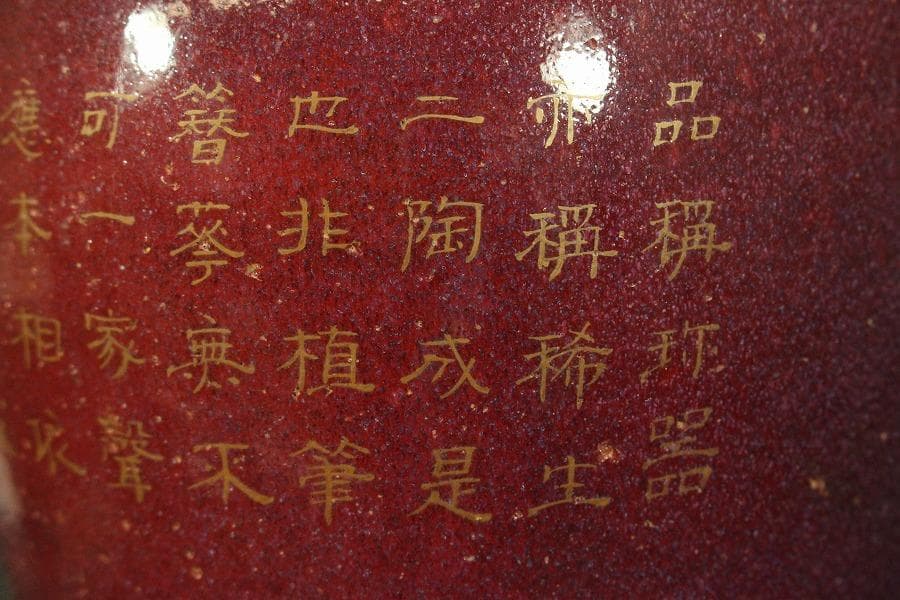 品稱珎器
亦稱稀生
二陶成是
也非植筆
簮蓡無不
可一家聲
應本相求